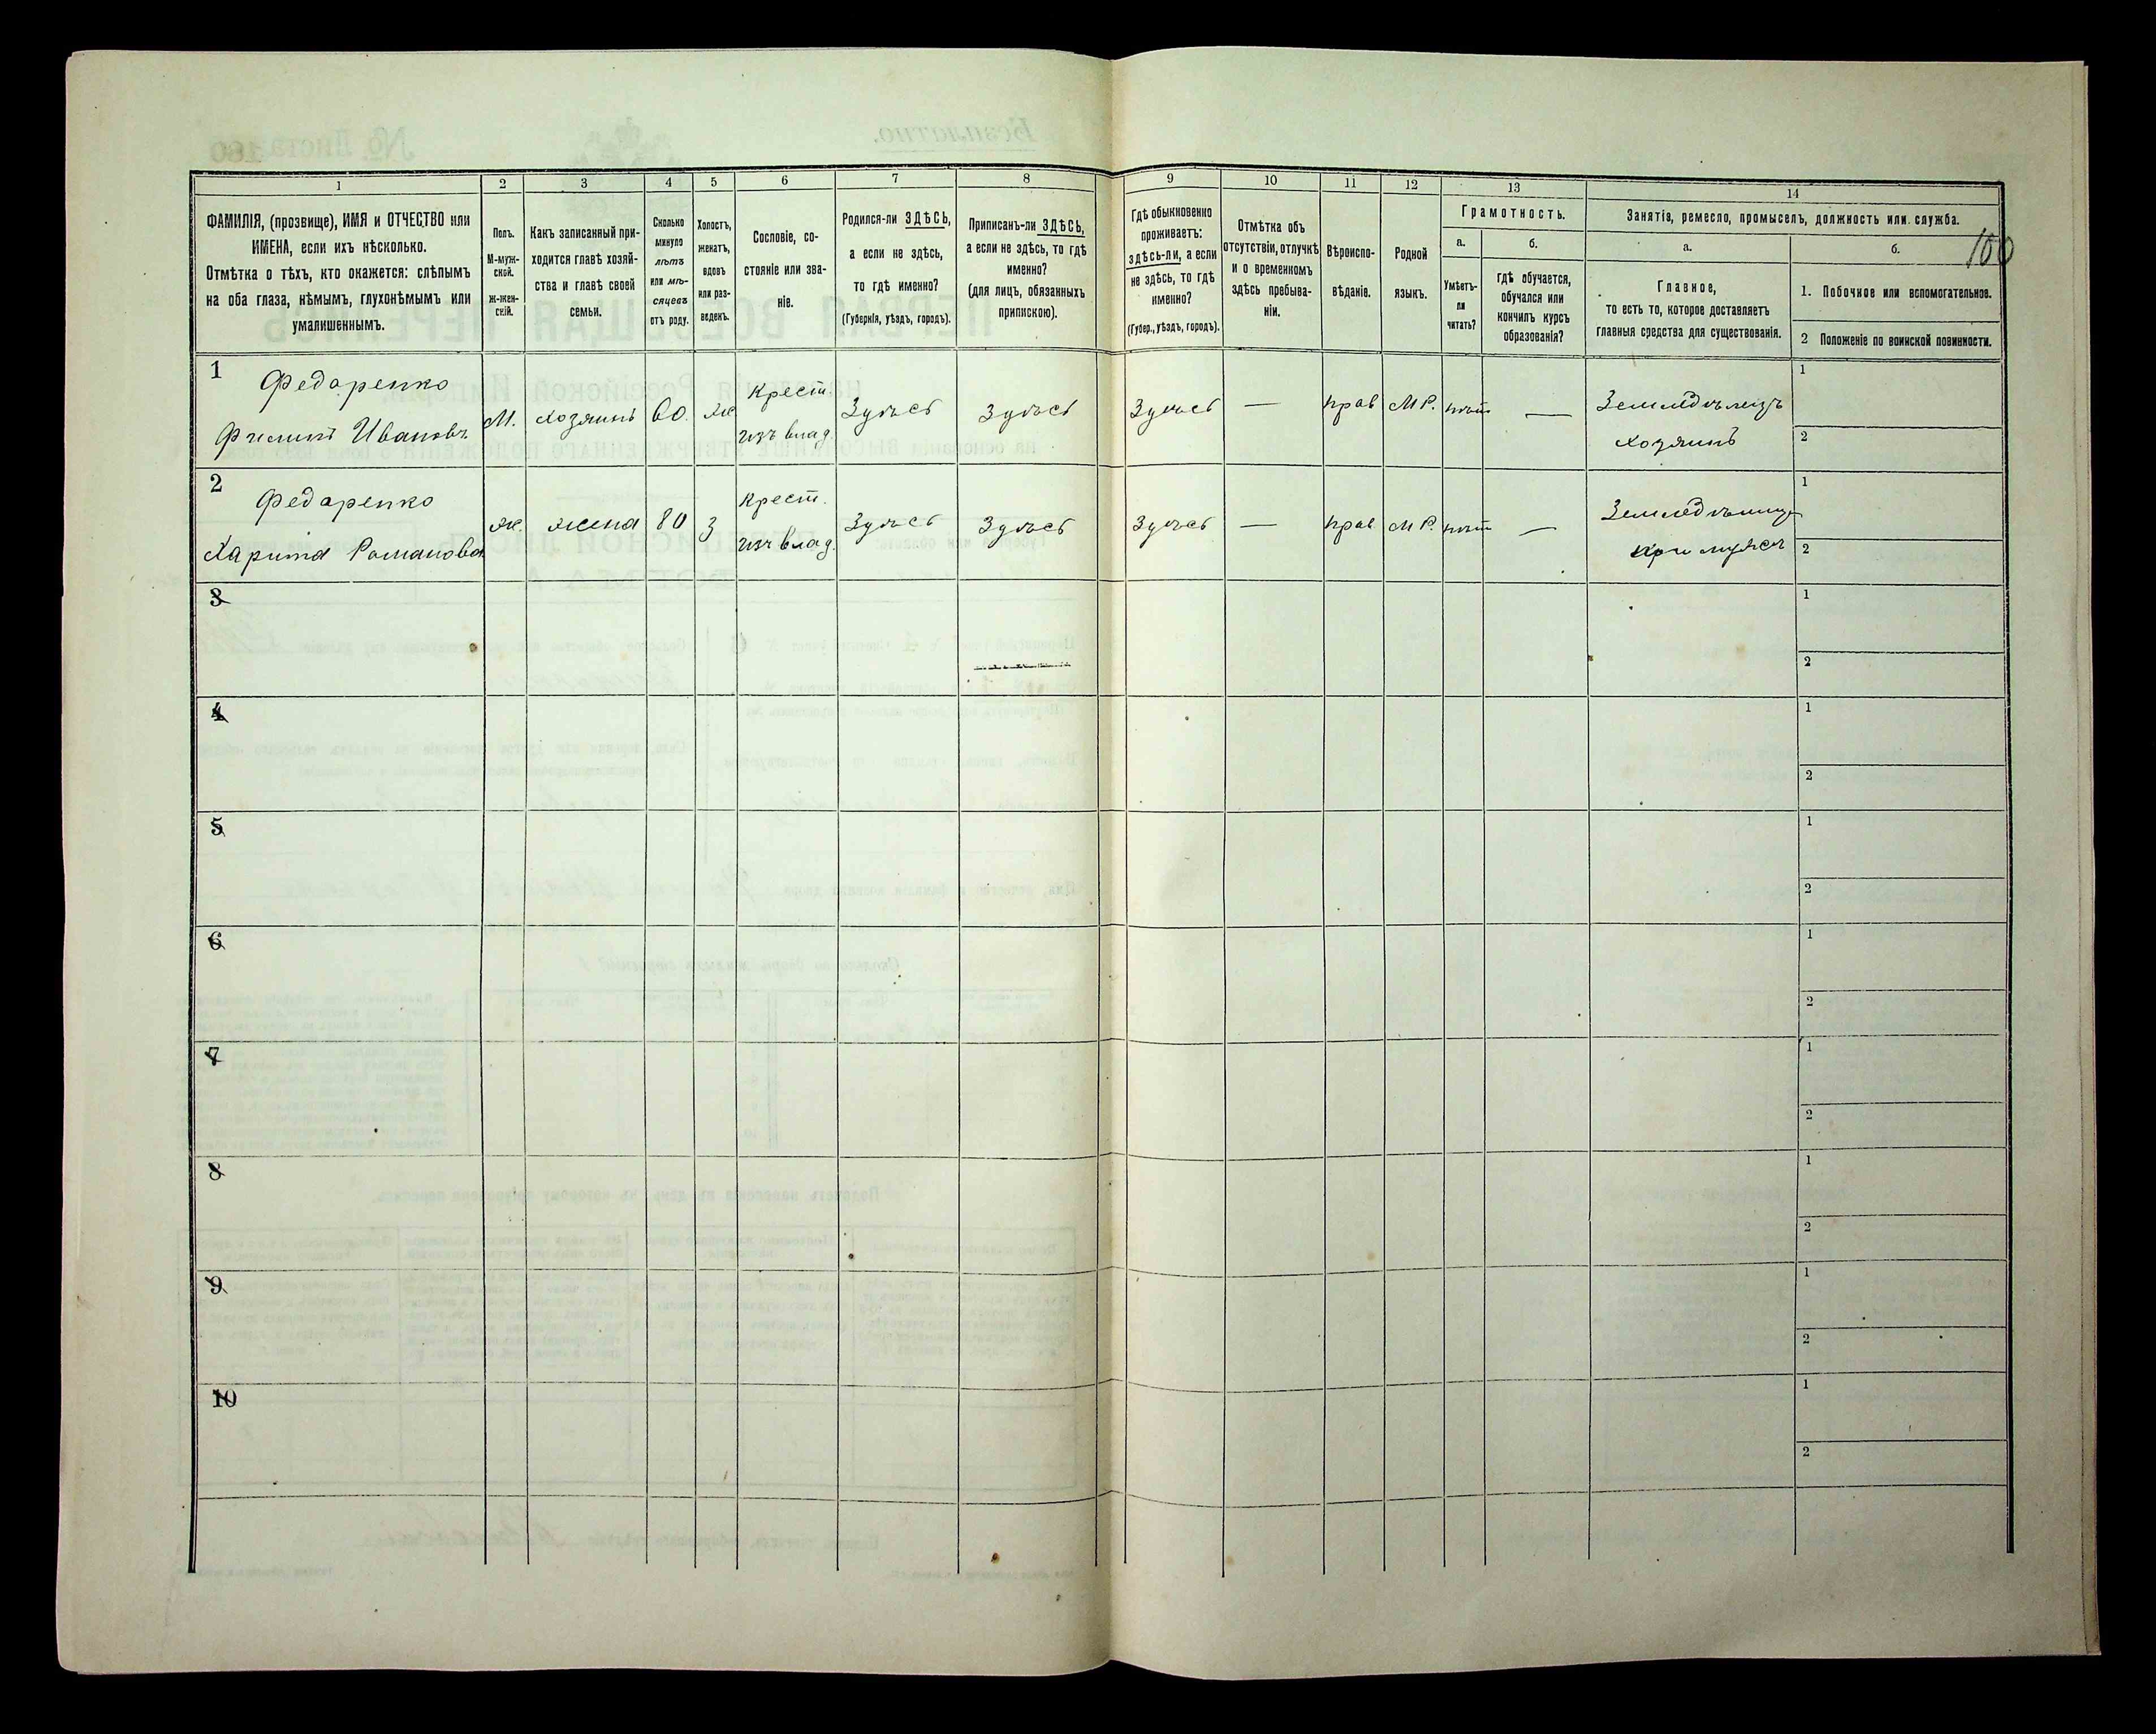 1
2
3
4
5
6
7
8
9
10
11
12
13
14
ФАМИЛІЯ, (прозвище), ИМЯ и ОТЧЕСТВО или
ИМЕНА, если ихъ нѣсколько.
Отмѣтка о тѣхъ, кто окажется: слѣпымъ
на оба глаза, нѣмымъ, глухонѣмымъ или
умалишеннымъ.
Полъ.
М-муж-
ской.
ж-жен-
скій.
Какъ записанный при-
ходится главѣ хозяй-
ства и главѣ своей
семьи.
Сколько
минуло
лѣтъ
или мѣ-
сяцевъ
отъ роду.
Холостъ,
женатъ,
вдовъ
или раз-
веденъ.
Сословіе, со-
стояніе или зва-
ніе.
Родился-ли ЗДѢСЬ,
а если не здѣсь,
то гдѣ именно?
(Губернія, уѣздъ, городъ).
Приписанъ-ли ЗДѢСЬ,
а если не здѣсь, то гдѣ
именно?
(для лицъ, обязанныхъ
припискою).
Гдѣ обыкновенно
проживаетъ:
здѣсь-ли, а если
не здѣсь, то гдѣ
именно?
(Губер., уѣздъ, городъ).
Отмѣтка объ
отсутствіи, отлучкѣ
и о временномъ
здѣсь пребыва-
ніи.
Вѣроиспо-
вѣданіе.
Родной
языкъ.
Грамотность.
а.
б.
Умѣетъ-
ли
читать?
гдѣ обучается,
обучался или
кончилъ курсъ
образованія?
Занятія, ремесло, промыселъ, должность или служба.
а.
б.
100
Главное,
то есть то, которое доставляетъ
главныя средства для существованія.
1. Побочное или вспомогательное.
2 Положеніе по воинской повинности.
1
Федаренко
Филипъ Ивановъ
М.
хозяинъ
60.
же
Крест.
изъ влад.
Здѣсь
Здѣсь
Здѣсь
—
прав
М Р.
нѣт
—
Земледѣлецъ
хозяинъ
1
2
2
Федаренко
Харита Романова
ж.
жена
80
З
Крест.
изъ влад.
Здѣсь
Здѣсь
Здѣсь
—
прав
М Р.
нѣт
—
при мужѣ
1
2
3
1
2
4
1
2
5
1
2
6
1
2
7
1
2
8
1
2
9
1
2
10
1
2